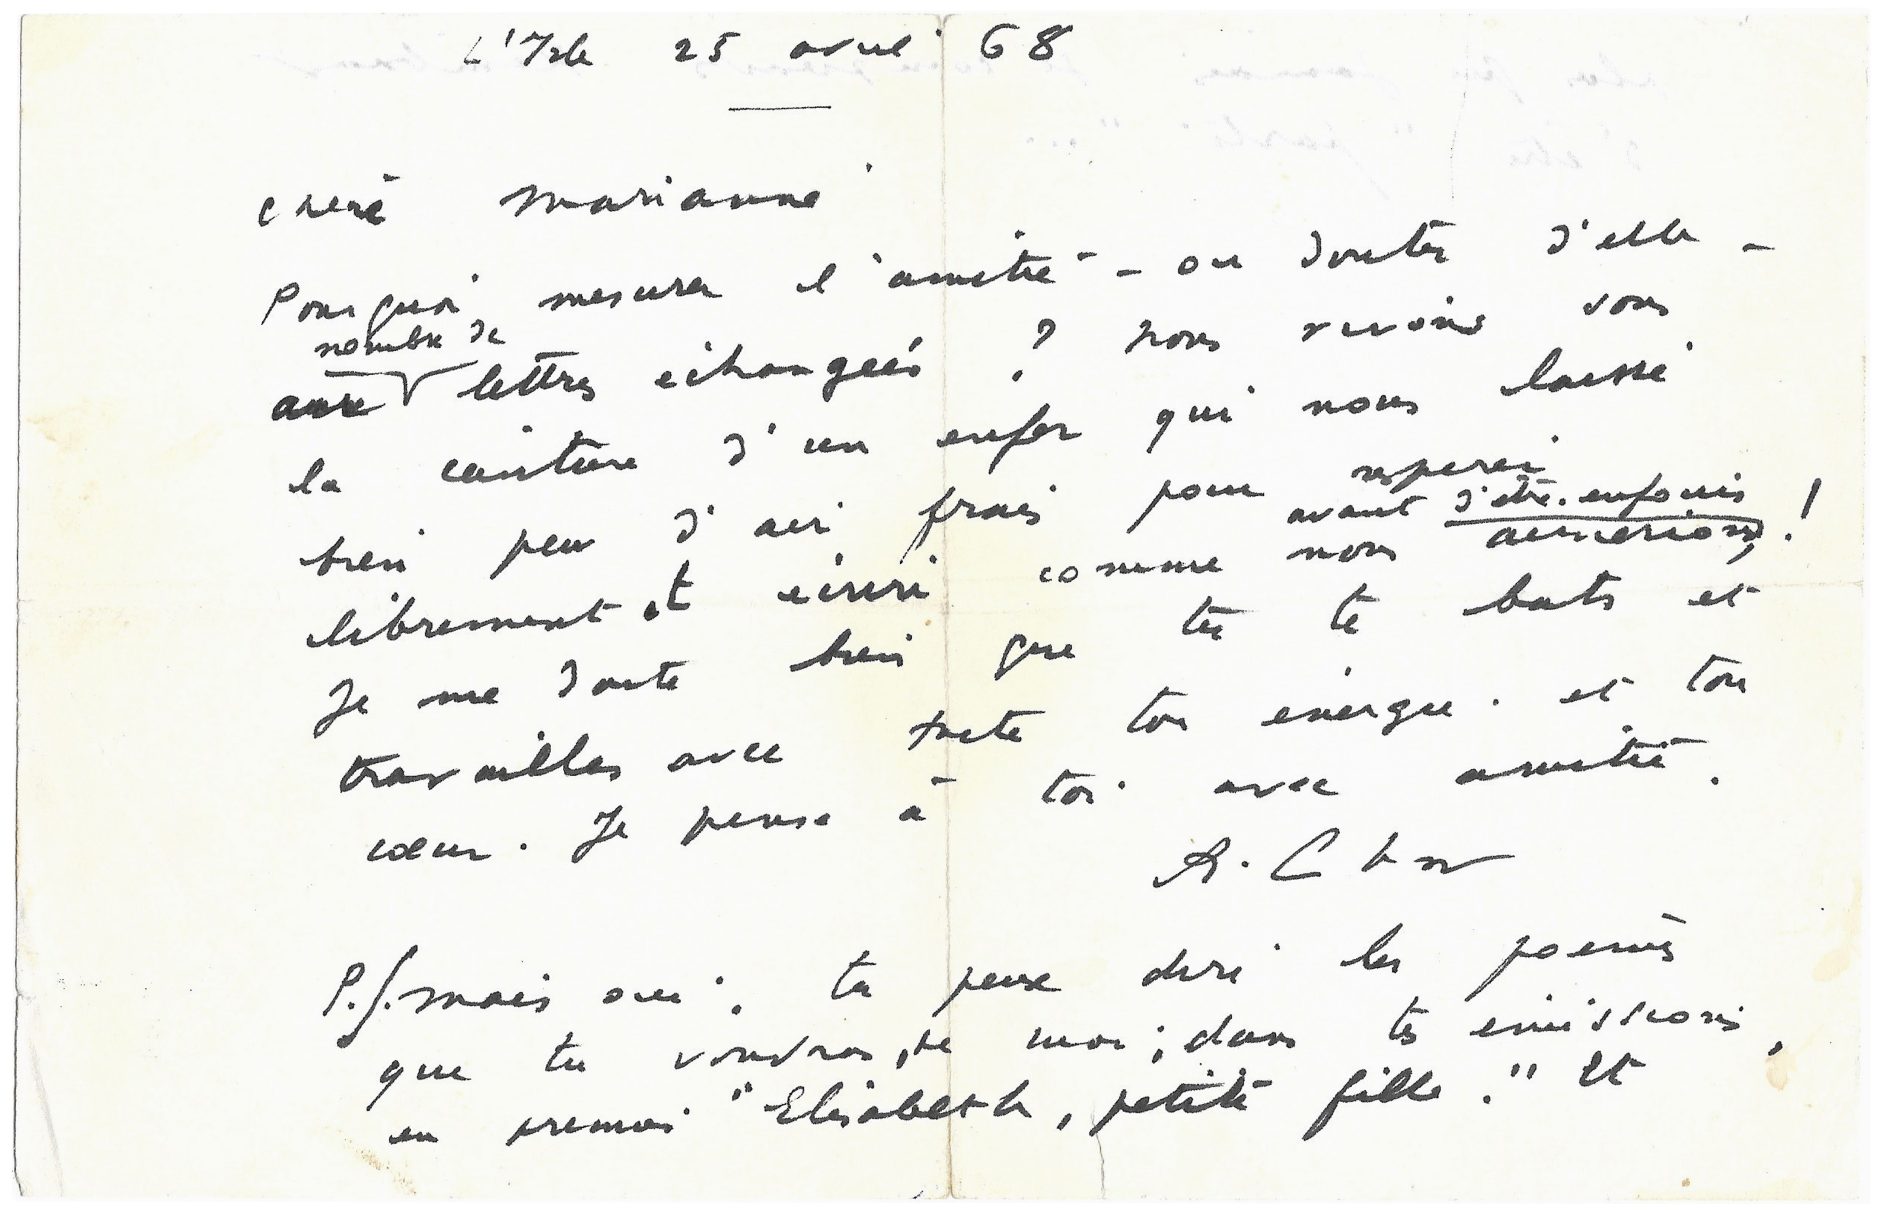 L'Isle 25 avril 68
chère Marianne
Pourquoi mesurer l'amitié - ou douter d'elle -
nombre de
aux lettres échangées ? Nous vivons sous
la ceinture d'un enfer qui nous laisse
bien peu d'air frais pour respirer
avant d'être enfouis
librement et écrire comme nous aimerions, !
Je me doute bien que tu te bats et
travailles avec toute ton énergie et ton
cœur. Je pense à toi avec amitié.
R. Char
P.S. mais oui, tu peux dire les poèmes
que tu voudras, de moi ; dans tes émissions,
en premier "Elisabeth, petite fille." Et